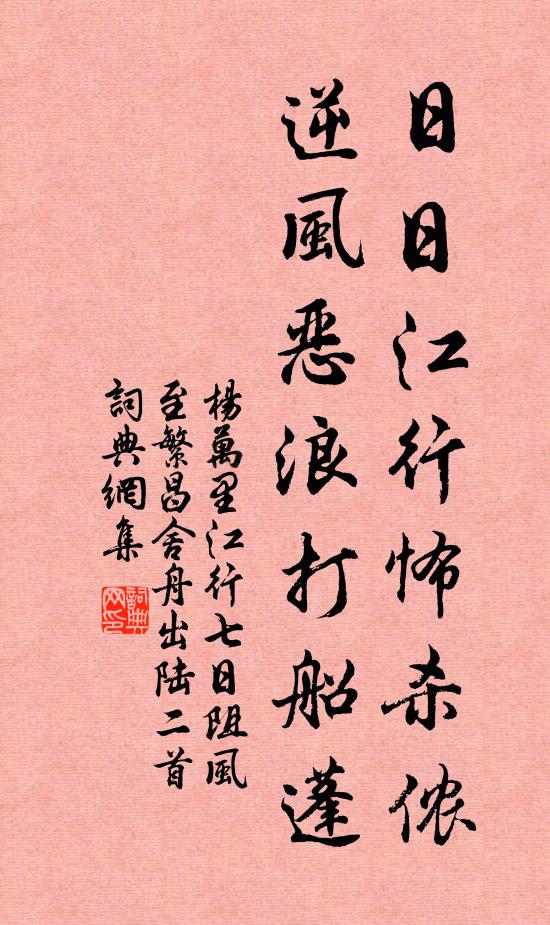 日日江行怖杀侬
逆風恶浪打船蓬
楊萬里江行七日阻風
至繁昌舍舟出陆二首
詞典網集
詞典网印